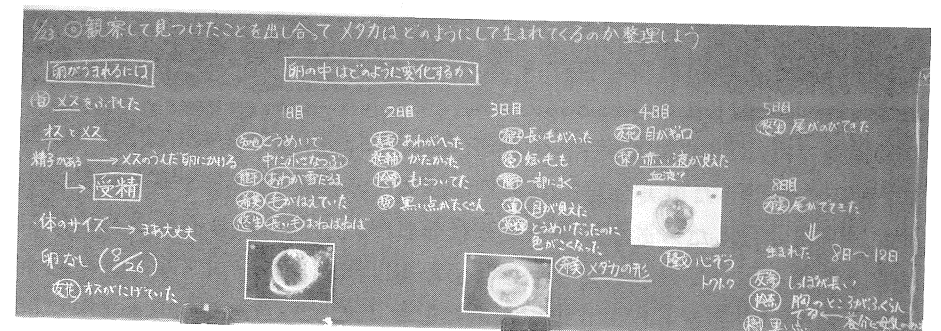 観察して見つけたことを出し合って メダカはどのようにして生まれてくるのか整理しよう
卵がうまれるには
卵の中はどのように変化するか
メスをふやした
オスとメス
精子がある → メスのうんだ卵にかける
受精
体のサイズ → まあ大丈夫
卵なし (8/26)
友花 オスがにげていた
1日目
とうめいで
中に小さなつぶ
あわが雪だるま
毛がはえていた
悠生 長い毛 まわりねばねば
2日目
あわがへった
かたかった
もについてた
黒い点がたくさん
3日目
長い毛がへった
短い毛も
一部に多く
目が見えた
とうめいだったのに
色がこくなった
メダカの形
4日目
友花 目がギョロ
赤い液が見えた
血液?
心ぞう
トクトク
5日目
悠生 尾がのびてきた
8日目
尾がでてきた
生まれた 8日〜12日
しっぽが長い
胸のところがふくらん
でる
黒い点